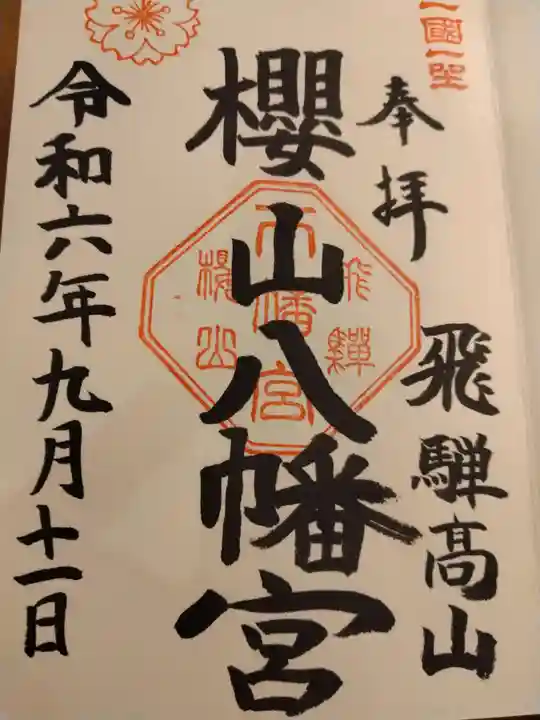 一国一社
奉拝
飛騨高山
櫻山八幡宮
飛驒
八幡宮
櫻山
令和六年九月十一日